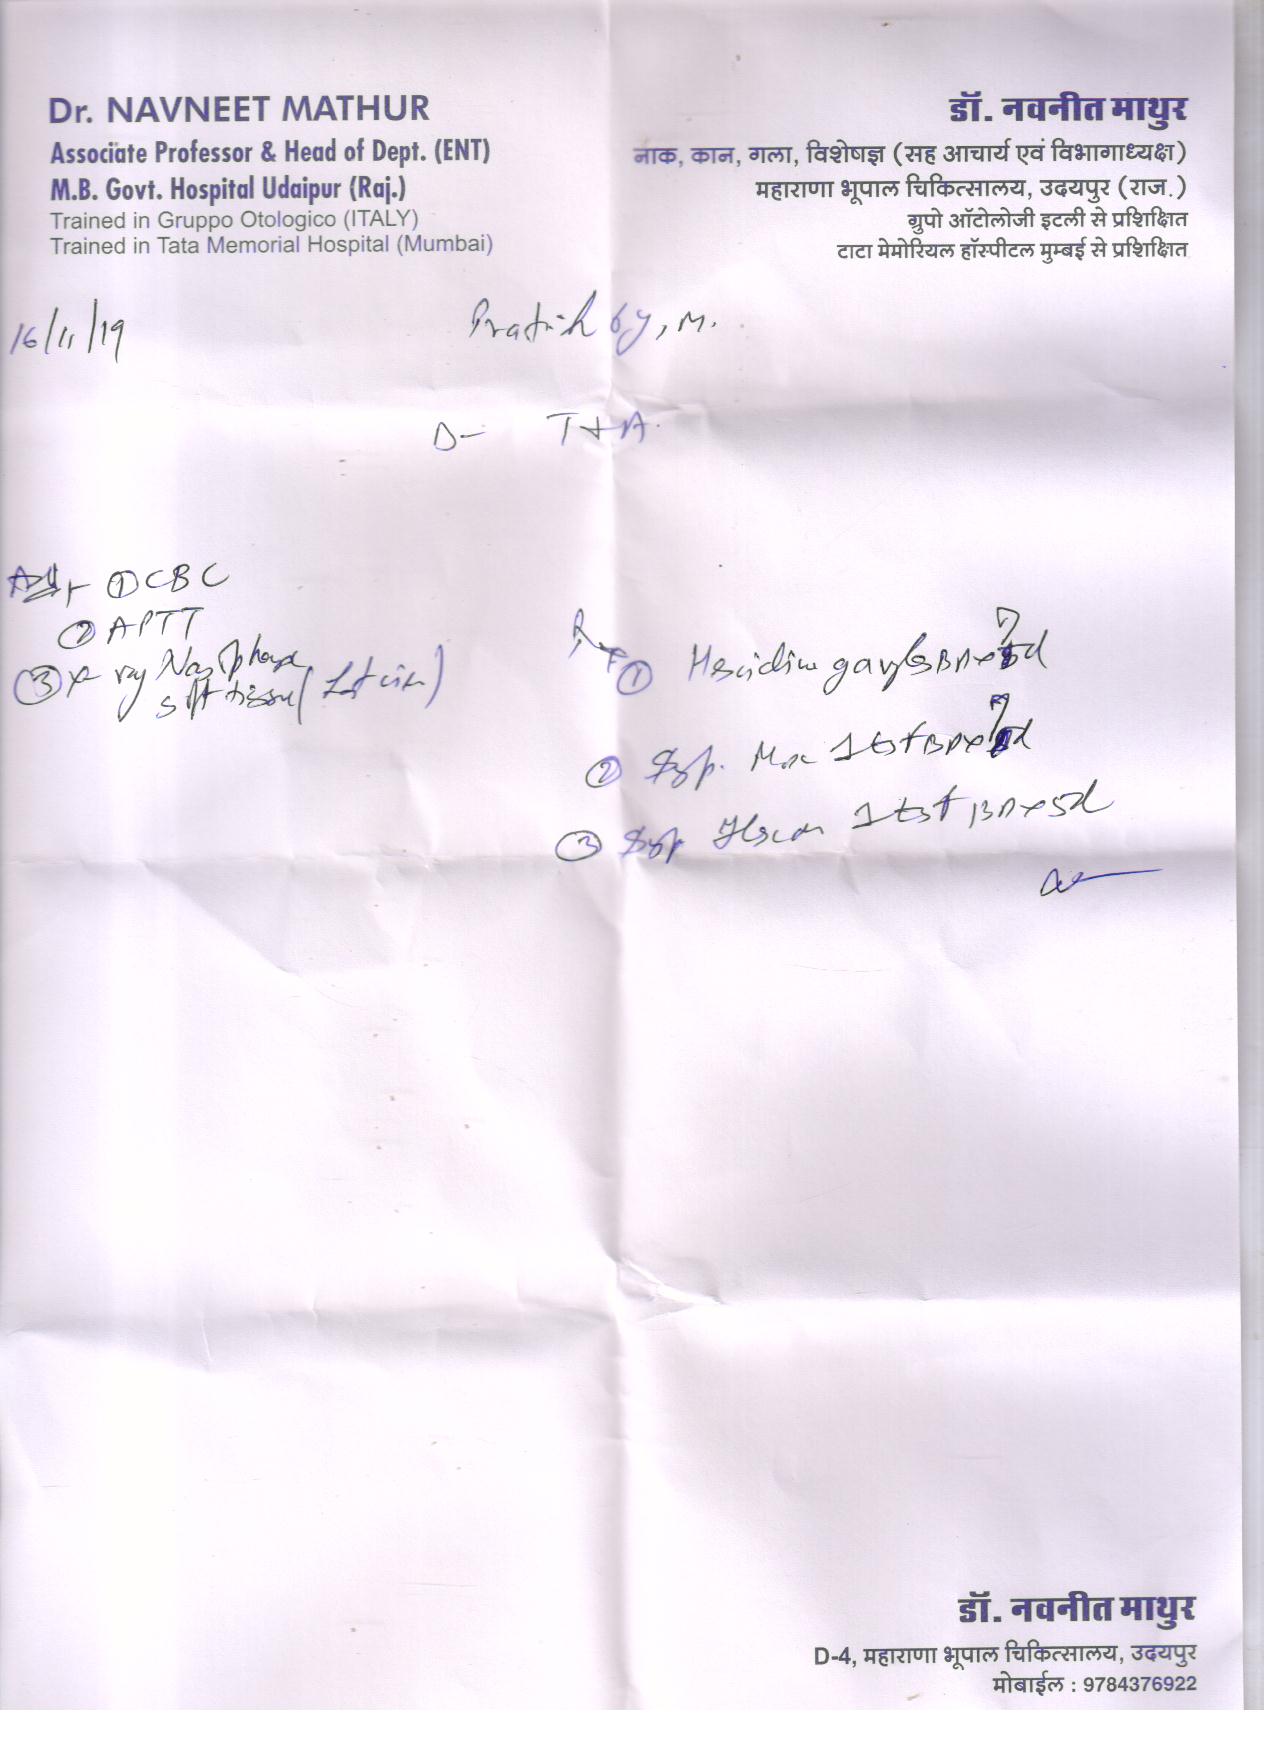 Dr. NAVNEET MATHUR
Associate Professor & Head of Dept. (ENT)
M.B. Govt. Hospital Udaipur (Raj.)
Trained in Gruppo Otologico (ITALY)
Trained in Tata Memorial Hospital (Mumbai)
डॉ. नवनीत माथुर
नाक, कान, गला, विशेषज्ञ (सह आचार्य एवं विभागाध्यक्ष)
महाराणा भूपाल चिकित्सालय, उदयपुर (राज.)
ग्रुपो ऑटोलोजी इटली से प्रशिक्षित
टाटा मेमोरियल हॉस्पीटल मुम्बई से प्रशिक्षित
16/11/19
6y, M.
D- T+A.
① CBC
② APTT
③ X ray
soft tissue
Rx ① BD x 7d
② Syp. 1 tsf BD x 7d
③ Syp 1 tsf BD x 5d
डॉ. नवनीत माथुर
D-4, महाराणा भूपाल चिकित्सालय, उदयपुर
मोबाईल : 9784376922